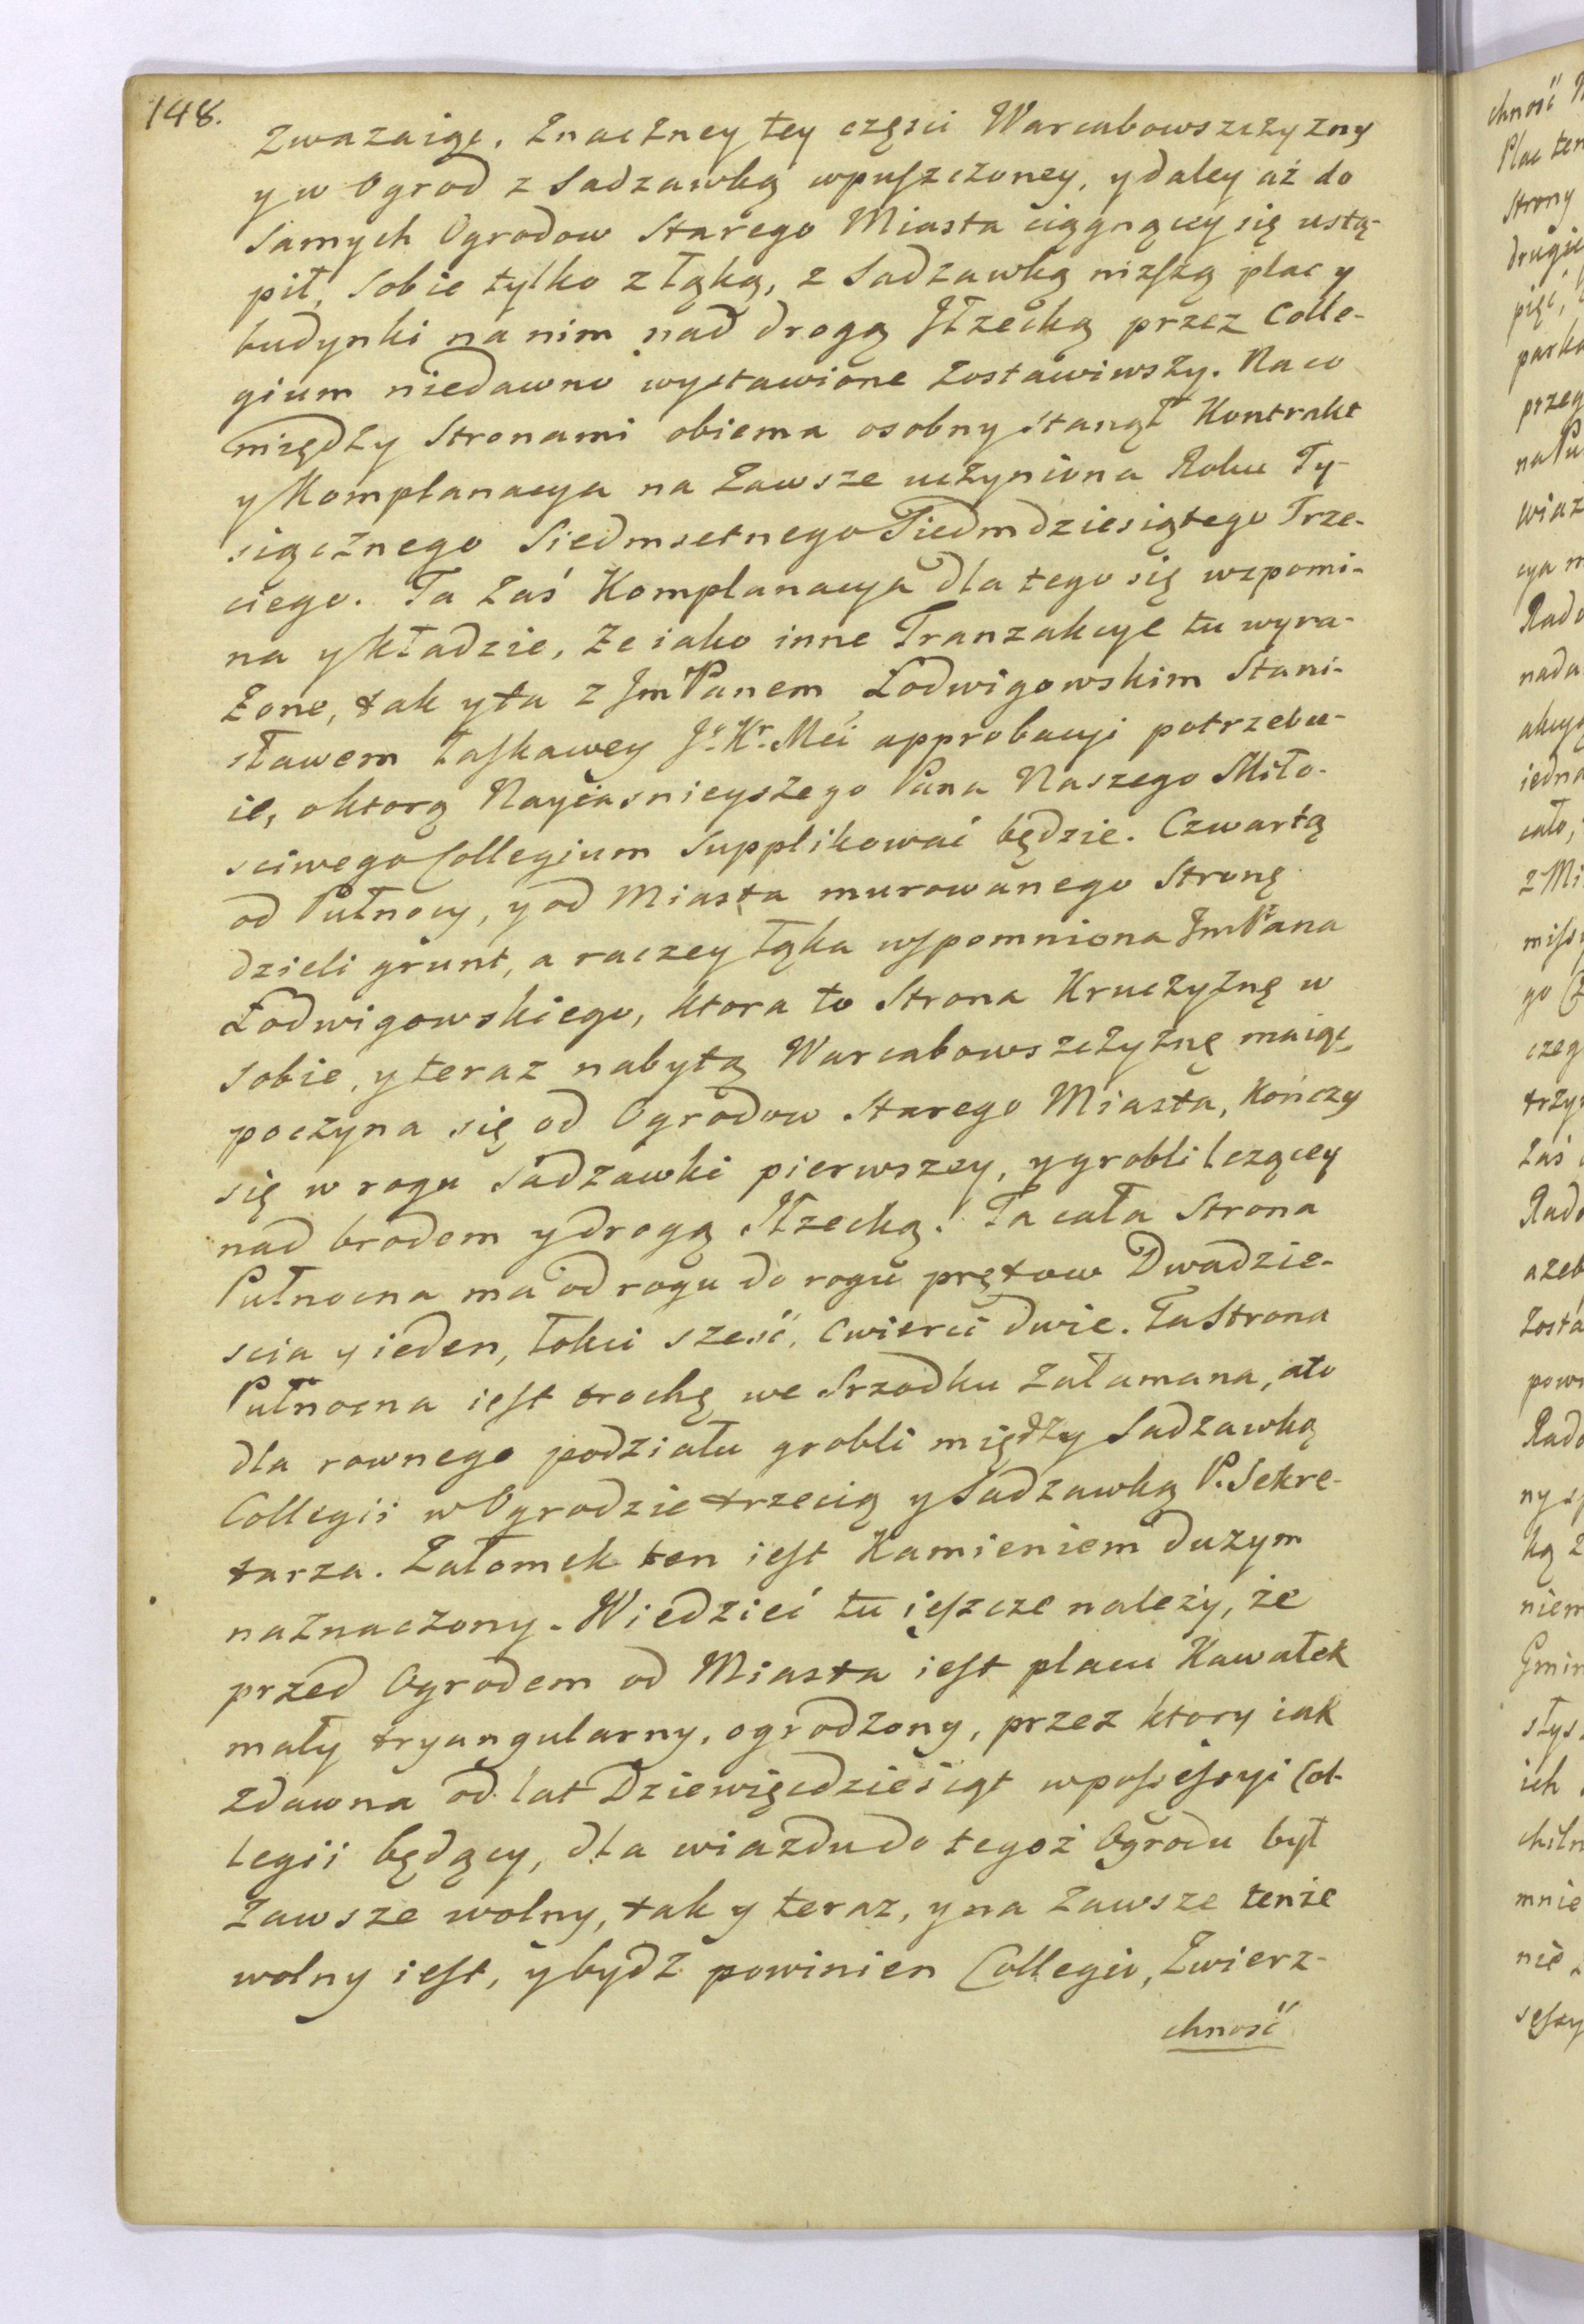 148.
Zwazaiąc, Znaczney tey części Warcabowszczyzny
y w Ogrod z Sadzawką wpuszczoney, y daley aż do
Samych Ogrodow Starego Miasta ciągnącey się ustą-
pił, Sobie tylko z Łąką, z Sadzawką nizszą plac y
budynki na nim nad drogą Iłzecką przez Colle-
gium niedawno wystawione Zostawiwszy. Na co
między Stronami obiema osobny stanął Kontrakt
y Komplanacya na Zawsze uczyniona Roku Ty-
siącznego Siedmsetnego Siedmdziesiątego Trze-
ciego. Ta Zaś Komplanacya dla tego się wzpomi-
na y kładzie, Ze iako inne Tranzakcye tu wyra-
Zone, tak y ta z Jm Panem Łodwigowskim Stani-
sławem Łaskawey Jº Kr. Mci approbacyi potrzebu-
ie, o ktorą Nayiasnieyszego Pana Naszego Miło-
sciwego Collegium Supplikować będzie. Czwartą
od Pułnocy, y od Miasta murowanego Stronę
dzieli grunt, a raczey Łąka wspomniona Jm Pana
Łodwigowskiego, Ktora to Strona Kruczyznę w
Sobie, y teraz nabytą Warcabowszczyznę maiąc,
poczyna się od Ogrodow Starego Miasta, Kończy
się w rogu Sadzawki pierwszey, y grobli lezącey
nad brodem y drogą Iłzecką. Ta cała Strona
Pułnocna ma od rogu do rogu prętow Dwadzie-
scia y ieden, Łokci sześć, cwierci dwie. Ta Strona
Pułnocna iest trochę we Srzodku Załamana, a to
dla rownego podziału grobli między Sadzawką
Collegii w Ogrodzie trzecią y Sadzawką P. Sekre-
tarza. Załomek ten iest Kamieniem duzym
naznaczony. Wiedzieć tu ieszcze należy, że
przed Ogrodem od Miasta iest placu Kawałek
mały tryangularny, ogrodzony, przez ktory iak
zdawna od lat Dziewięcdziesiąt w possessyi Col-
legii będący, dla wiazdu do tegoż Ogrodu był
Zawsze wolny, tak y teraz, y na Zawsze tenże
wolny iest, y bydź powinien Collegio, Zwierz-
chność